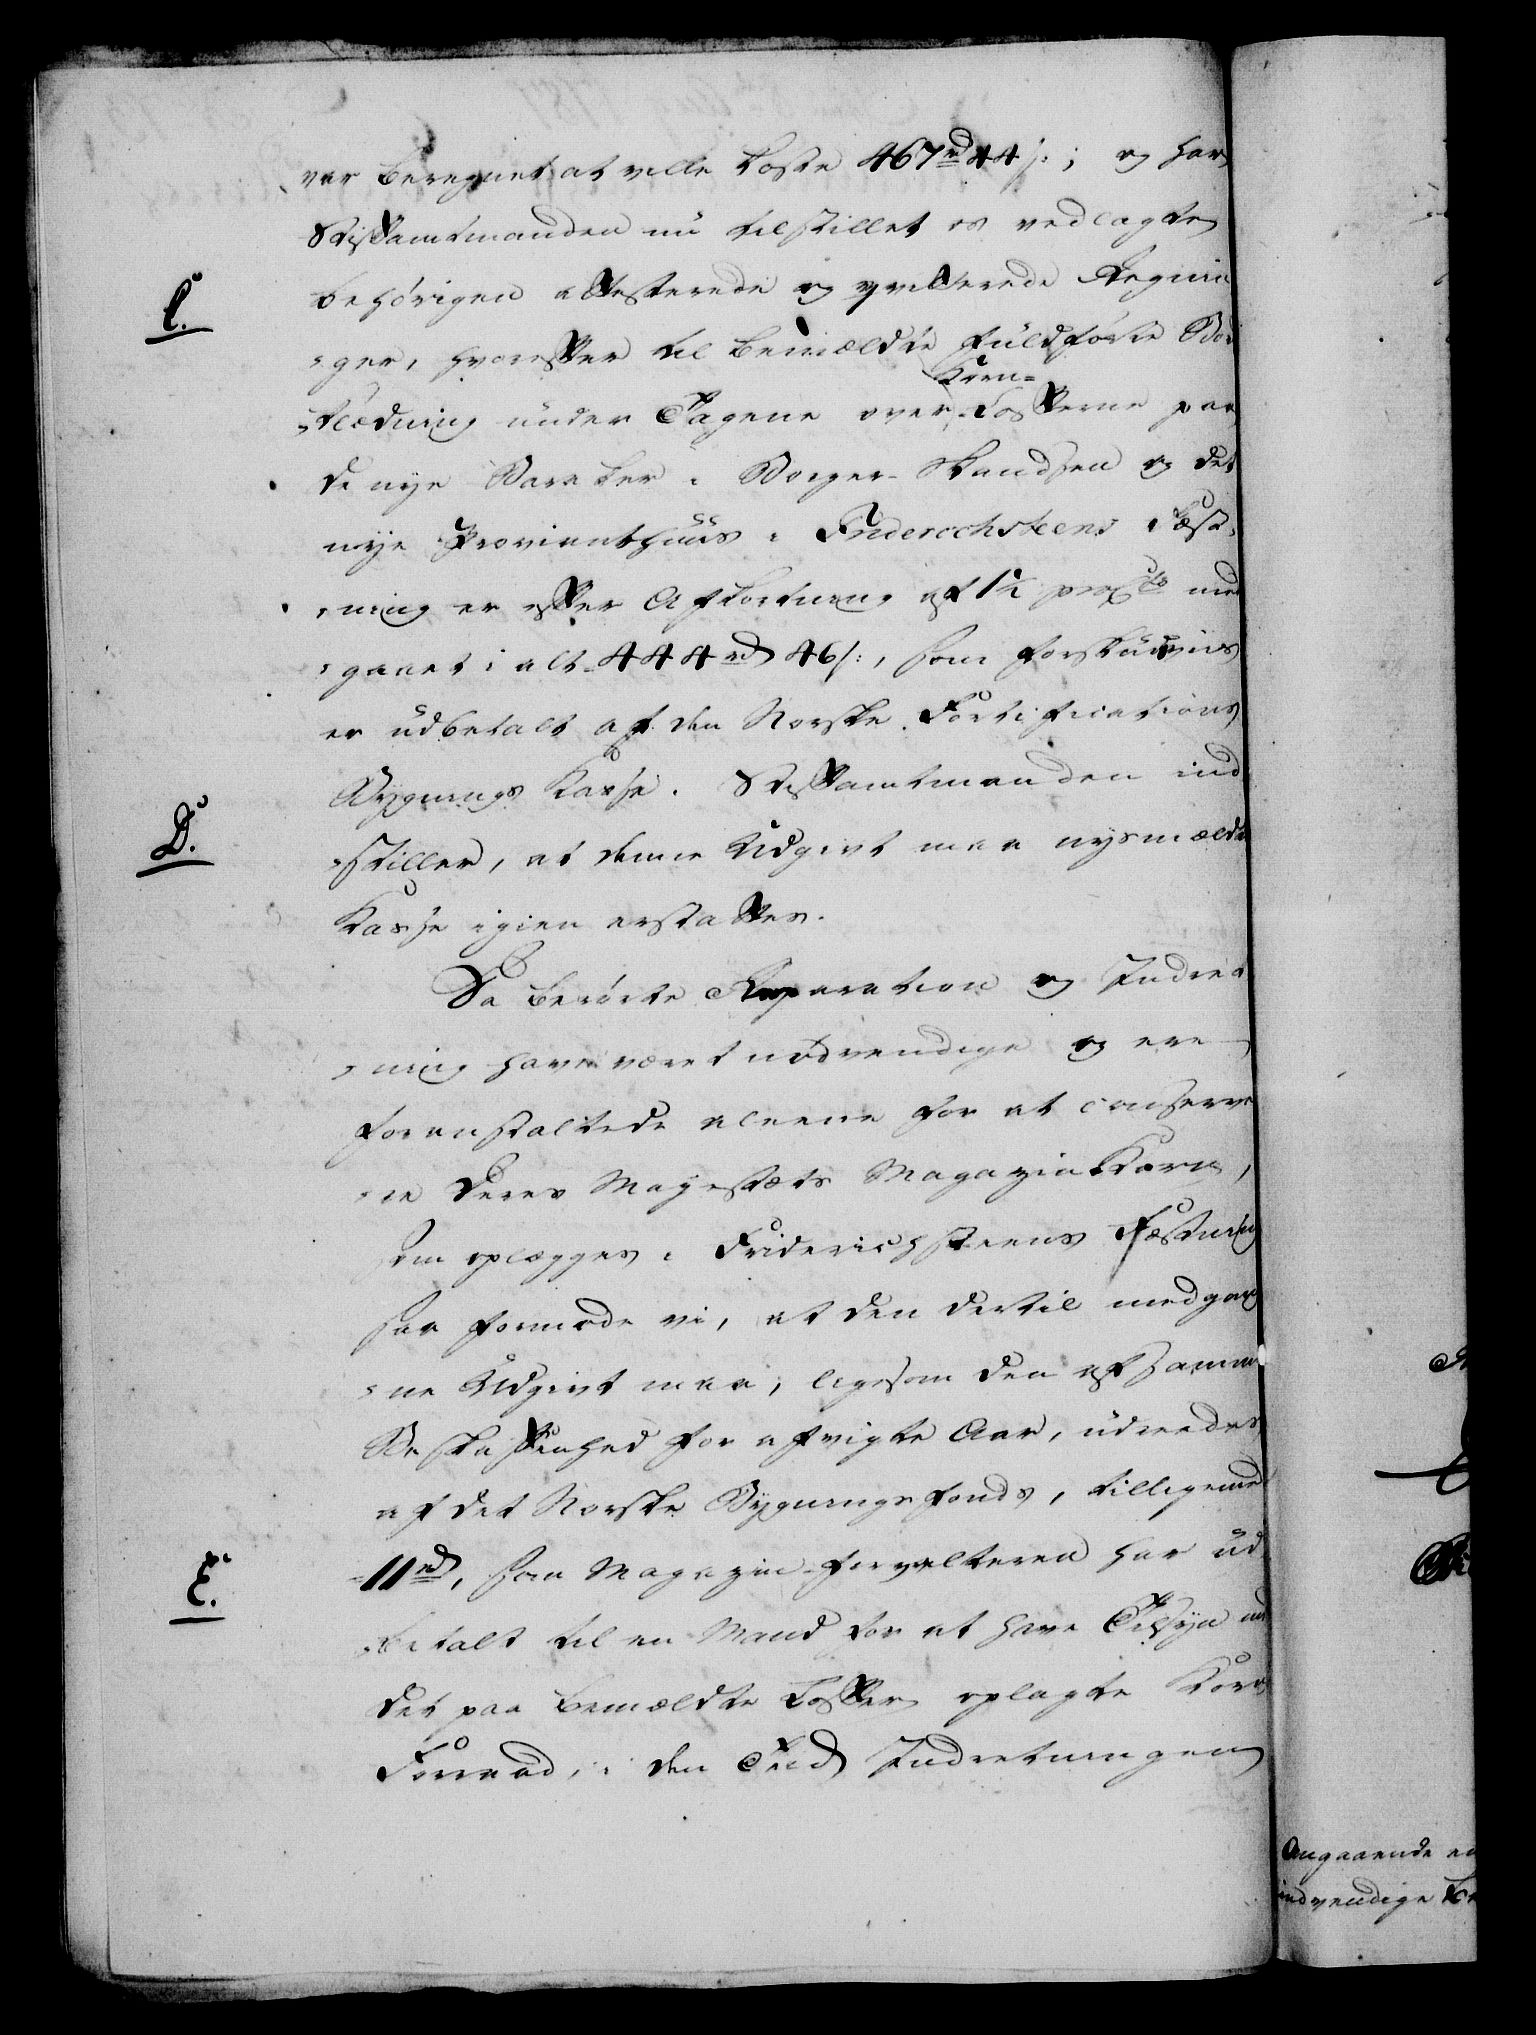 var beregnet at ville koste 467rd 44 s:; og har
Stiftamtmanden nu tilstillet os vedlagte
C.
behörigen attesterede og qvitterede Regnin
ger, hvorefter til bemældte fuldförte Bord
Korn-
klædning under Tagene over Lofterne paa
de nye Baraker i Borger-Skandsen og det
nye Provianthuus i Friderichsteens Fæst-
ning er efter Afkortning af 1½ procto med
gaaet i alt 444rd 46 s:, som forskudsviis
er udbetalt af den Norske Fortifications
Bygnings Kasse. Stiftamtmanden ind
D.
stiller, at denne Udgivt maa nysmældte
Kasse igien erstattes.
Da berörte Reparation og Indret
ning have været nödvendige og ere
foranstaltede aleene for at conserve
re Deres Majestæts Magazin Korn,
som oplægges i Friderichsteens Fæstning
saa formode vi, at den dertil medgang
ne Udgivt maa, ligesom den af samme
Beskaffenhed for afvigte Aar, udreedes
af det Norske Bygnings fonds, tilligemed
E.
11rd, som Magazin-forvalteren har ud
betalt til en Mand for at have Tilsyn med
det paa bemældte Lofter oplagte Korn
Forraad, i den Tiid Indretningen
Angaaende en
indvendige